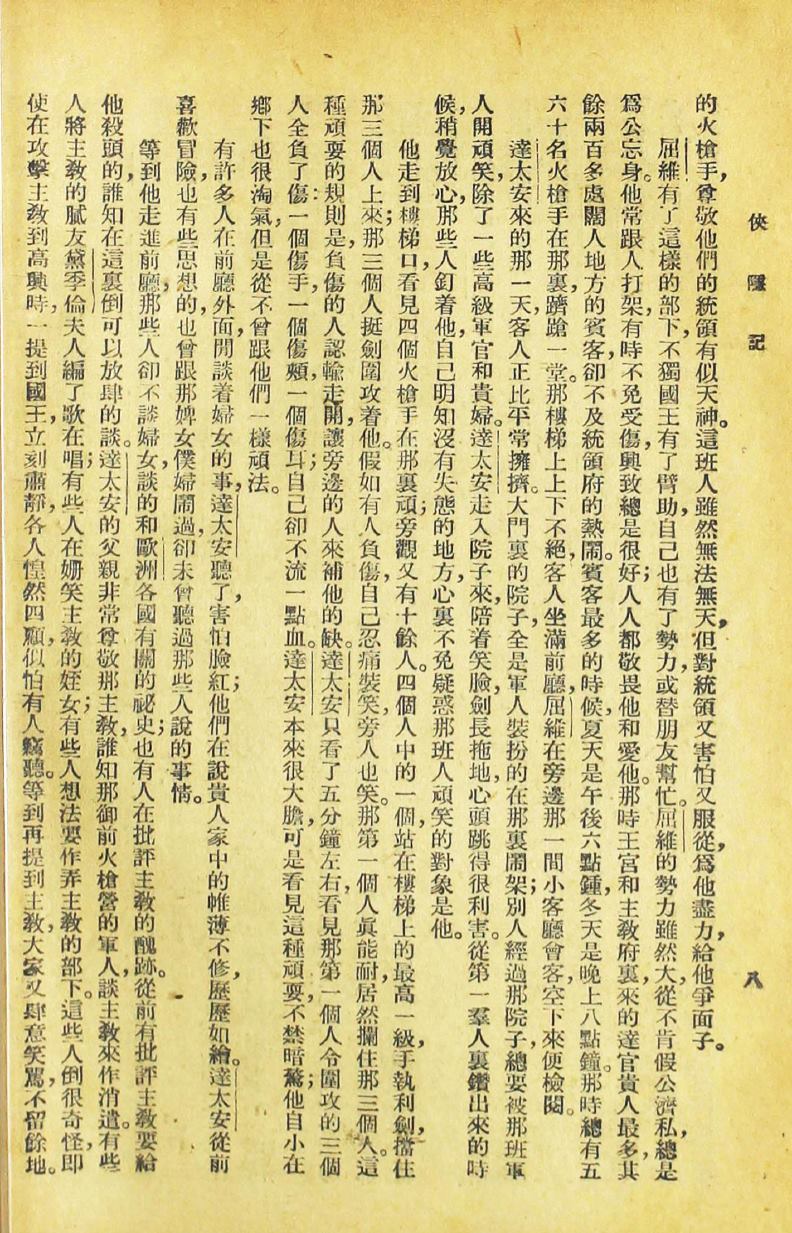 俠隱記
八
的火槍手，尊敬他們的統領有似天神。這班人雖然無法無天，但對統領又害怕又服從，爲他盡力，給他爭面子。
屈維有了這樣的部下，不獨國王有了臂助，自己也有了勢力，或替朋友幫忙。屈維的勢力雖然大，從不肯假公濟私，總是
爲公忘身。他常跟人打架，有時不免受傷，興致總是很好；人人都敬畏他和愛他。那時王宮和主教府裏，來的達官貴人最多，其
餘兩百多處闊人地方的賓客，卻不及統領府的熱鬧。賓客最多的時候，夏天是午後六點鐘，冬天是晚上八點鐘。那時總有五
六十名火槍手在那裏，躋蹌一堂。那樓梯上上下下不絕，客人坐滿前廳，屈維在旁邊那一間小客廳會客，空下來便檢閱。
達太安來的那一天，客人正比平常擁擠。大門裏的院子，全是軍人裝扮的在那裏鬧架；別人經過那院子，總要被那班軍
人開頑笑，除了一些高級軍官和貴婦。達太安走入院子來，陪着笑臉，劍長拖地，心頭跳得很利害。從第一羣人裏鑽出來的時
候，稍覺放心，那些人釘着他，自己明知沒有失態的地方，心裏不免疑惑那班人頑笑的對象是他。
他走到樓梯口，看見四個火槍手在那裏頑；旁觀又有十餘人。四個人中的一個，站在樓梯上的最高一級，手執利劍，擋住
那三個人上來；那三個人挺劍圍攻着他。假如有人負傷，自己忍痛裝笑，旁人也笑。那第一個人眞能耐，居然攔住那三個人。這
種頑耍的規則是，負傷的人認輸走開，讓旁邊的人來補他的缺。達太安只看了五分鐘左右，看見那第一個人令圍攻的三個
人全負了傷：一個傷手，一個傷頰，一個傷耳；自己卻不流一點血。達太安本來很大膽，可是看見這種頑耍，不禁暗驚；他自小在
鄉下也很淘氣，但是從不曾跟他們一樣頑法。
有許多人在前廳外面，閒談着婦女的事，達太安聽了，害怕臉紅；他們在說貴人家中的帷薄不修，歷歷如繪。達太安從前
喜歡冒險，也有些思想的，也曾跟那婢女僕婦鬧過，卻未曾聽過那些人說的事情。
等到他走進前廳，那些人卻不談婦女，談的和歐洲各國有關的祕史；也有人在批評主教的醜跡。從前有批評主教要給
他殺頭的，誰知在這裏倒可以放肆的談。達太安的父親非常尊敬那主教，誰知那御前火槍營的軍人，談主教來作消遣。有些
人將主教的膩友黛季倫夫人編了歌在唱；有些人在姍笑主教的姪女；有些人想法要作弄主教的部下。這些人倒很奇怪，即
使在攻擊主教到高興時，一提到國王，立刻肅靜，各人惶然四顧，似怕有人竊聽。等到再提到主教，大家又肆意笑罵，不留餘地。